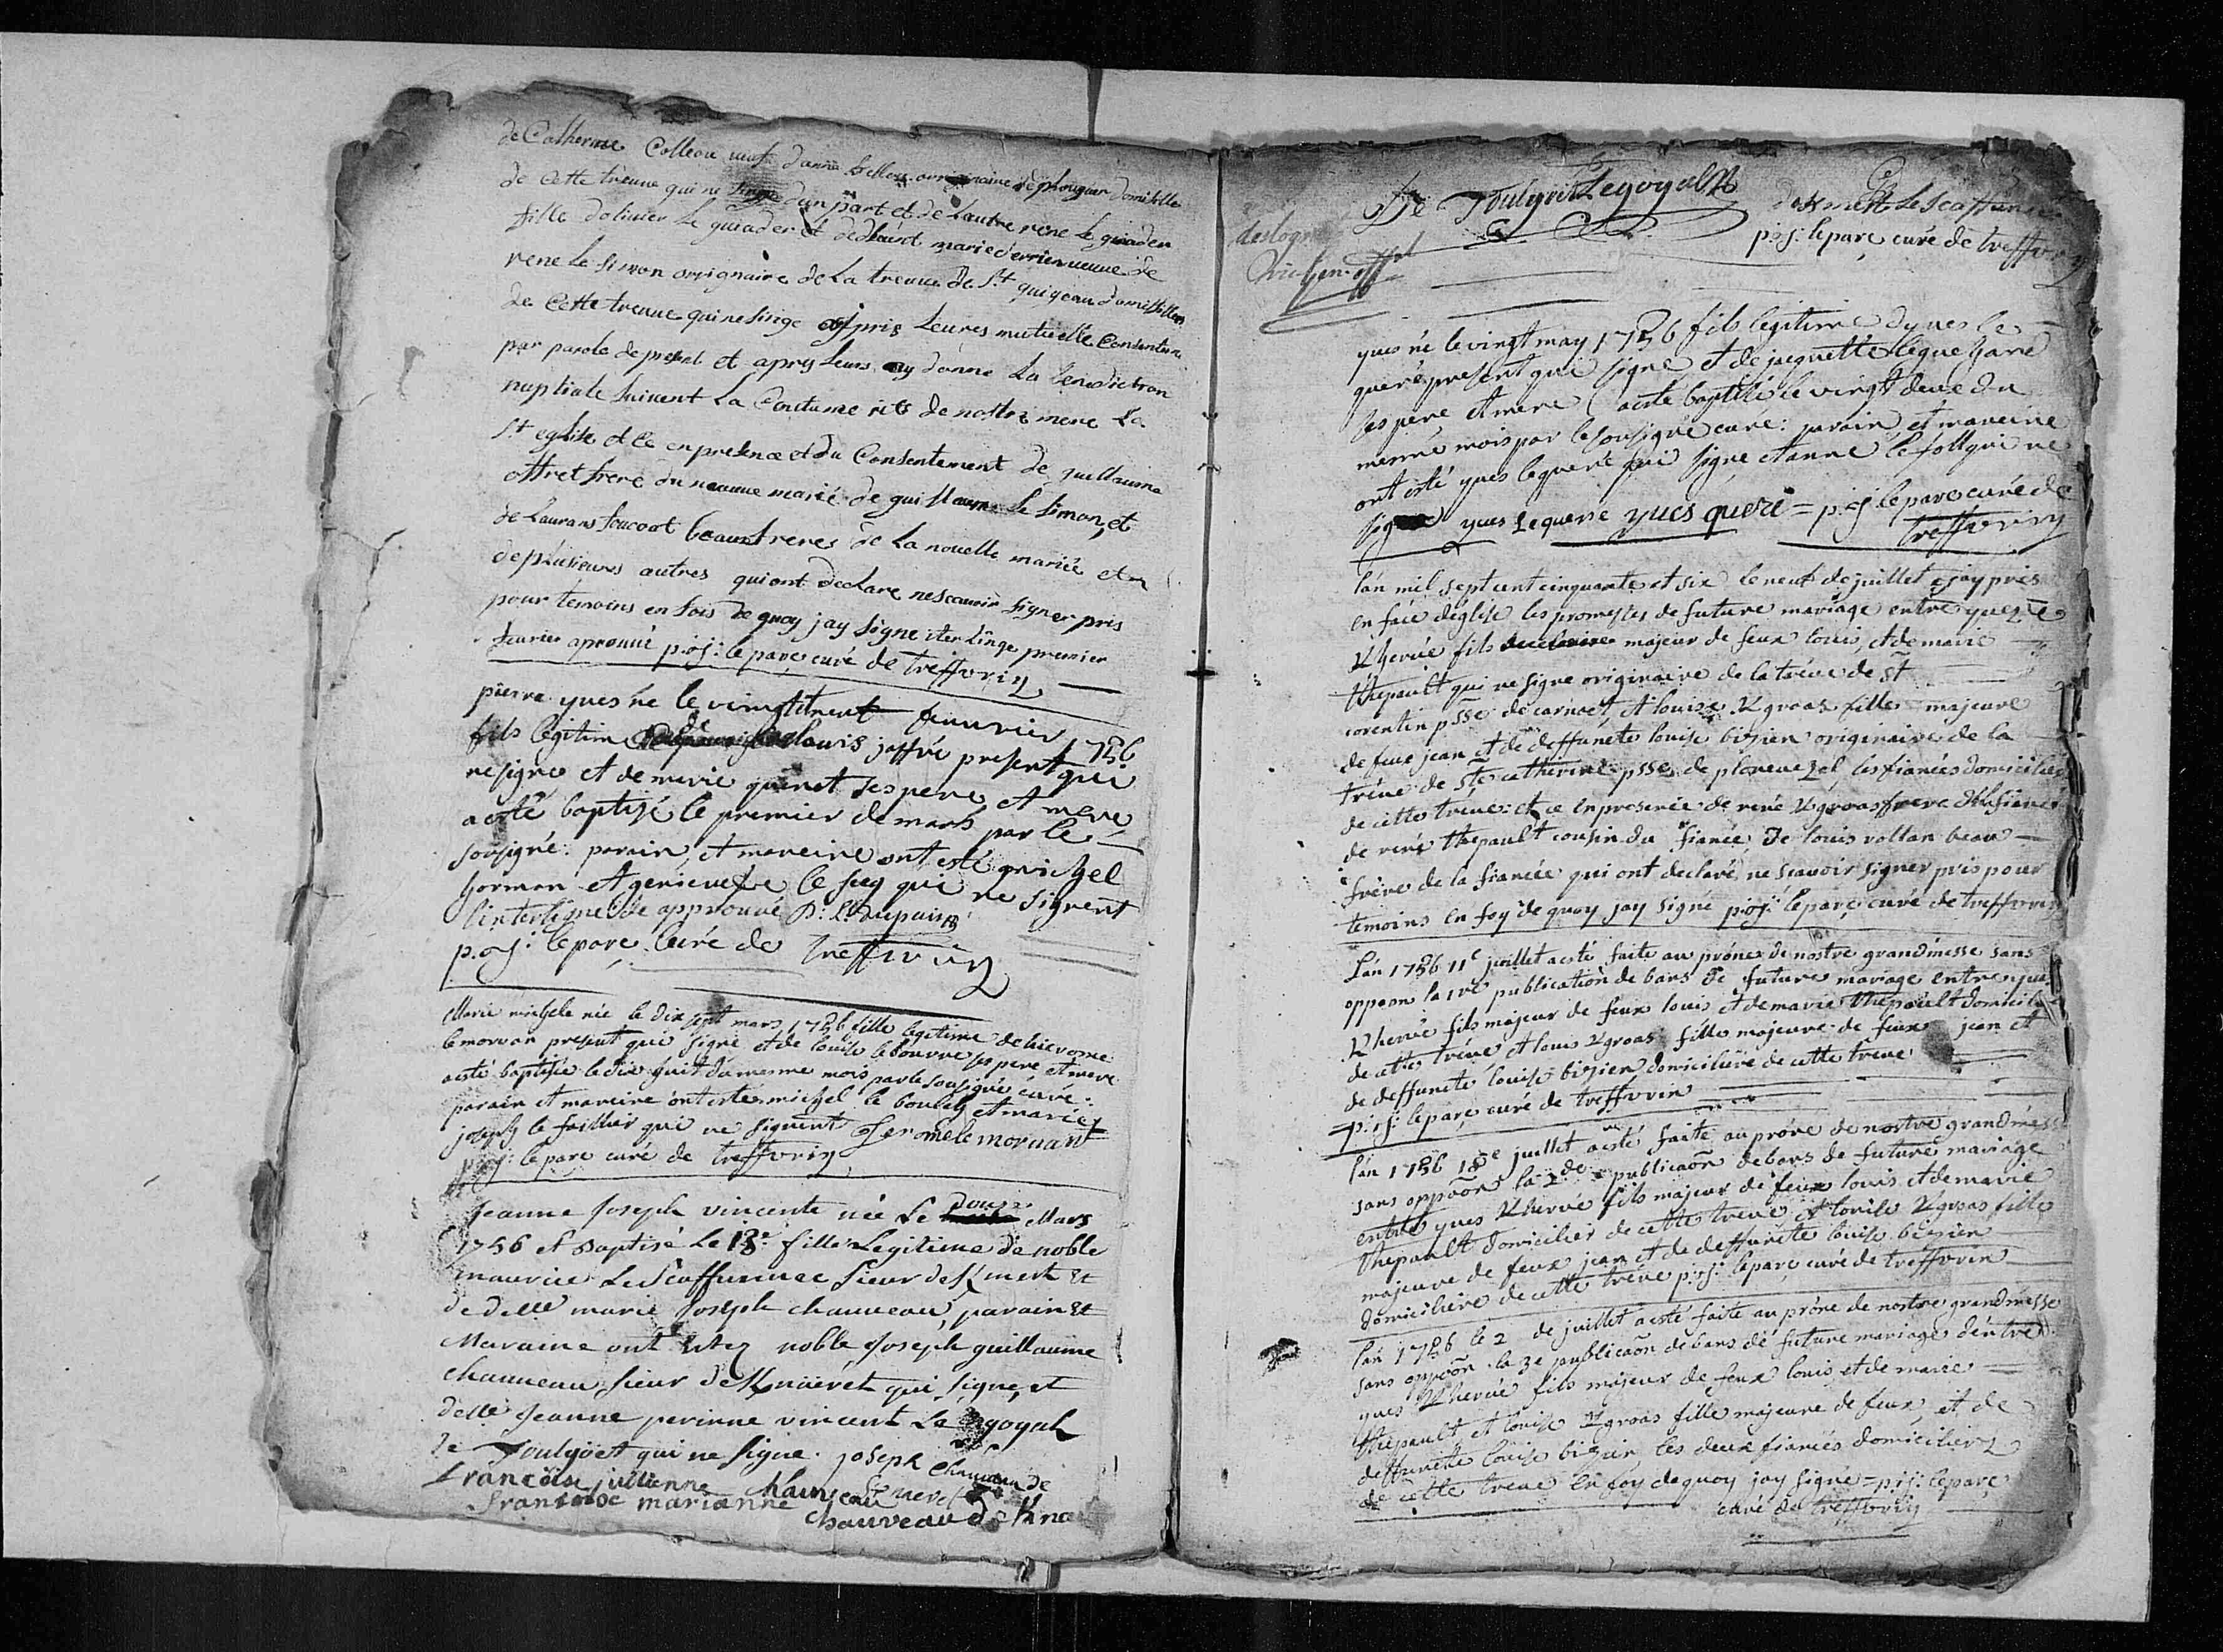 de Catherine Colleau veuf danne domisille
de Cette treuue qui ne singe dun part et de Lautre rene le guiader
fille dolivier Le guiader et de deffunt marie derrien veuue de
rene Le simon orrignaire de La treuue de St quigeau domissilliers
de Cette treuue qui ne singe ay pris Leures mutuelle Consentem
par parole de presant et aprys Leurs ay donné La benediction
nuptiale suivent La Coutume rits de nostre mere La
St eglise et Ce en presence et du Consentement de guillaume
ottret frere du nouueau marié de guillaume Le simon, et
de Laurans beaux freres de La nouelle mariée et
de plusieures autres qui ont declare ne scauoir signer pris
pour temoins en fois de quoy jay signe iterLinge premier
feurier aprouué p: oj: le parc curé de treffvrin
pierre yues né le feuurier 1756
fils legitim de louis joffré present qui
ne signe et de marie guenet ses pere et mere
a esté baptizé le premier de mars par le
sousigné: parain, et mareine ont esté michel
horman et genieuefve le qui ne signent
l'interligne de approuué
p. oj: le parc curé de treffvrin
Marie michele née le dix sept mars 1756 fille legitime de hierome
le morvan present qui signe et de louise le bouvre ses pere et mere
a esté baptisée le dix huit du mesme mois par le sousigné curé:
parain et mareine ont estés michel le boulch et marie
joseph le faillier qui ne signent Jerome le morvant
p: oj: le parc curé de treffvrin
Douze
Jeanne Joseph vincente née Le Mars
1756 et Baptisé Le 13e fille Legitime de noble
maurice Le Scaffunnec sieur de Kmert et
de delle marie Joseph chauueau, parain et
Maraine ont Estez noble Joseph guillaume
Chauueau sieur de Knauret qui signe, et
delle Jeanne perinne vincent Le goyat
de Toulgoet qui ne signe. joseph Chauveau de
francoise jullienne Chauveau
françoise marianne chauveau de Kna
De Toulgoet Legoyat
de Kmert Le scaffunec
p: oj: leparc curé de treffvrin
yues né le vingt may 1756 fils legitime dyues le
queré present qui signe et de jacquette
ses pere, et mere a esté baptisé le vingt deux du
mesme mois par le sousigné curé: parain, et mareine
ont esté yues le queré qui signe et anne le foll qui ne
signe yues Lequere yues queré = p: oj: leparc curé de
treffvrin
lan mil sept cent cinquante et six le neuf de juillet jay pris
en face deglise les promesses de future mariage entre yues
Kherué fils majeur de feux louis, et de marie
thepault qui ne signe originaire de la tréue de st
corentin psse de carnoet, et louise Kgroas fille majeure
de feux jean et de deffuncte louise bizien originaire de la
tréue de ste catherine psse de plouneuezel, les fiancés domiciliers
de cette treue: et ce en presence de rené Kgroas frere de la fiancée
de rené thepault cousin du fiancé de louis rollan beau
frère de la fiancée qui ont declaré ne scauoir signer pris pour
temoins en foy de quoy jay signé p: oj: leparc curé de treffvrin
Lan 1756 11e juillet a esté faite au prône de nostre grandmesse sans
oppoon la 1re publication de bans de future mariage entre yues
Kherué fils majeur de feux louis et de marie thepault domicilier
de cette tréue et louise Kgroas fille majeure de feux jean et
de deffuncte louise bizien domiciliére de cette treue
p: oj: leparc curé de treffvrin
lan 1756 18e juillet a esté faite au prône de nostre grandmesse
sans oppoôn la 2de publicaôn de bans de future mariage
entre yues Kherué fils majeur de feux louis et de marie
thepault domicilier de cette treue et louise Kgroas fille
majeure de feux jean et de deffuncte louise bizien
domiciliére de cette tréue p: oj: leparc curé de treffvrin
lan 1756 le 2 de juillet a esté faite au prône de nostre grandmesse
sans oppoôn la 3e publicaôn de bans de future mariage dentre
yues Kherué fils majeur de feux louis, et de marie
thepault et louise Kgroas fille majeure de feux, et de
deffuncte louise bizien, les deux fiancés domiciliers
de cette treue en foy dequoy jay signe = p: oj: leparc
curé de treffvrin